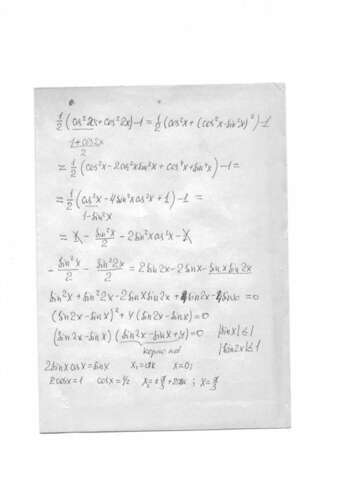 1/2 (cos²x + cos²2x) - 1 = 1/2 (cos²x + (cos²x - sin²x)²) - 1
1+cos2x
2
= 1/2 (cos²x - 2cos²x sin²x + cos⁴x + sin⁴x) - 1 =
= 1/2 (cos²x - 4sin²x cos²x + 1) - 1 =
1 - sin²x
= X - sin²x/2 - 2sin²x cos²x - X
- sin²x/2 - sin²2x/2 = 2sin2x - 2sinx - sinx sin2x
sin²x + sin²2x - 2sinx sin2x + 4sin2x - 4sinx = 0
(sin2x - sinx)² + 4(sin2x - sinx) = 0
(sin2x - sinx)(sin2x - sinx + 4) = 0 |sinx| ≤ 1
|sin2x| ≤ 1
2sinx cosx = sinx x₁ = πk x = 0;
2cosx = 1 cosx = 1/2 x₂ = ±π/3 + 2πk; x = π/3